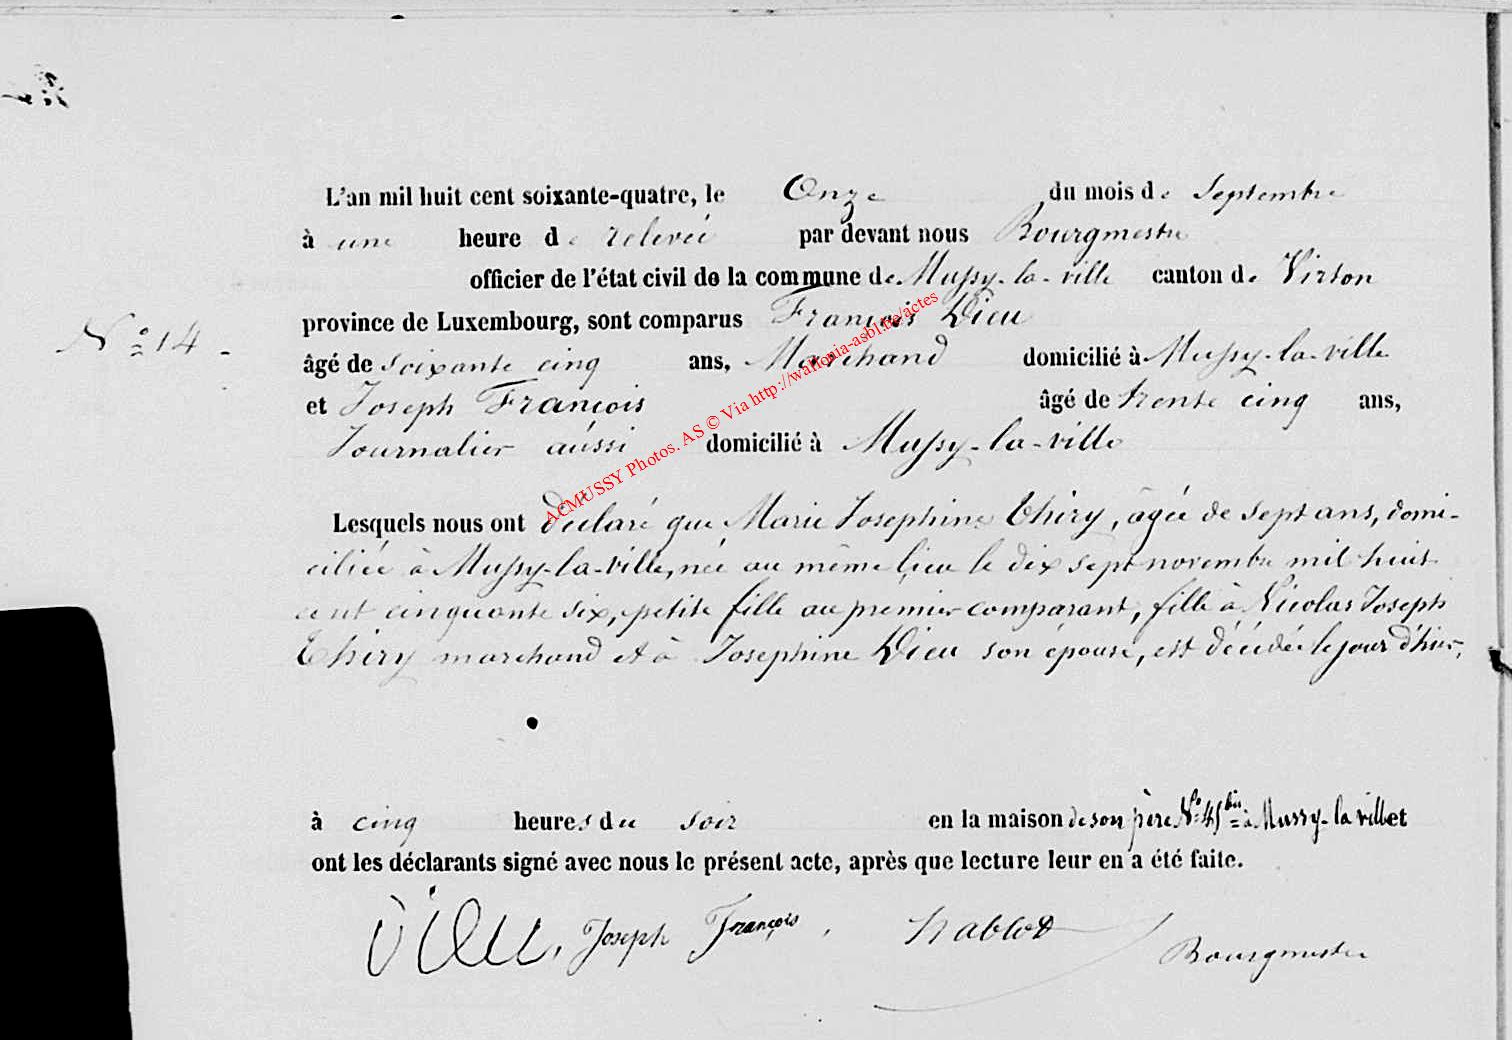 L'an mil huit cent soixante-quatre, le Onze du mois de Septembre
à une heure de relevée par devant nous Bourgmestre
officier de l'état civil de la commune de Mussy-la-ville canton de Virton
province de Luxembourg, sont comparus François Dieu
N° 14
âgé de soixante cinq ans, Marchand domicilié à Mussy-la-ville
et Joseph François âgé de trente cinq ans,
Journalier aussi domicilié à Mussy-la-ville
ACMUSSY Photos. AS © Via http://wallonia-asbl.be/actes
Lesquels nous ont déclaré que Marie Josephine Thiry, âgée de sept ans, domi-
ciliée à Mussy-la-ville, née au même lieu le dix sept novembre mil huit
cent cinquante six, petite fille au premier comparant, fille à Nicolas Joseph
Thiry marchand et à Josephine Dieu son épouse, est décédée le jour d'hier,
à cinq heures du soir en la maison de son père N° 45 bis à Mussy-la ville et
ont les déclarants signé avec nous le présent acte, après que lecture leur en a été faite.
Dieu, Joseph François, Hablot
Bourgmestre